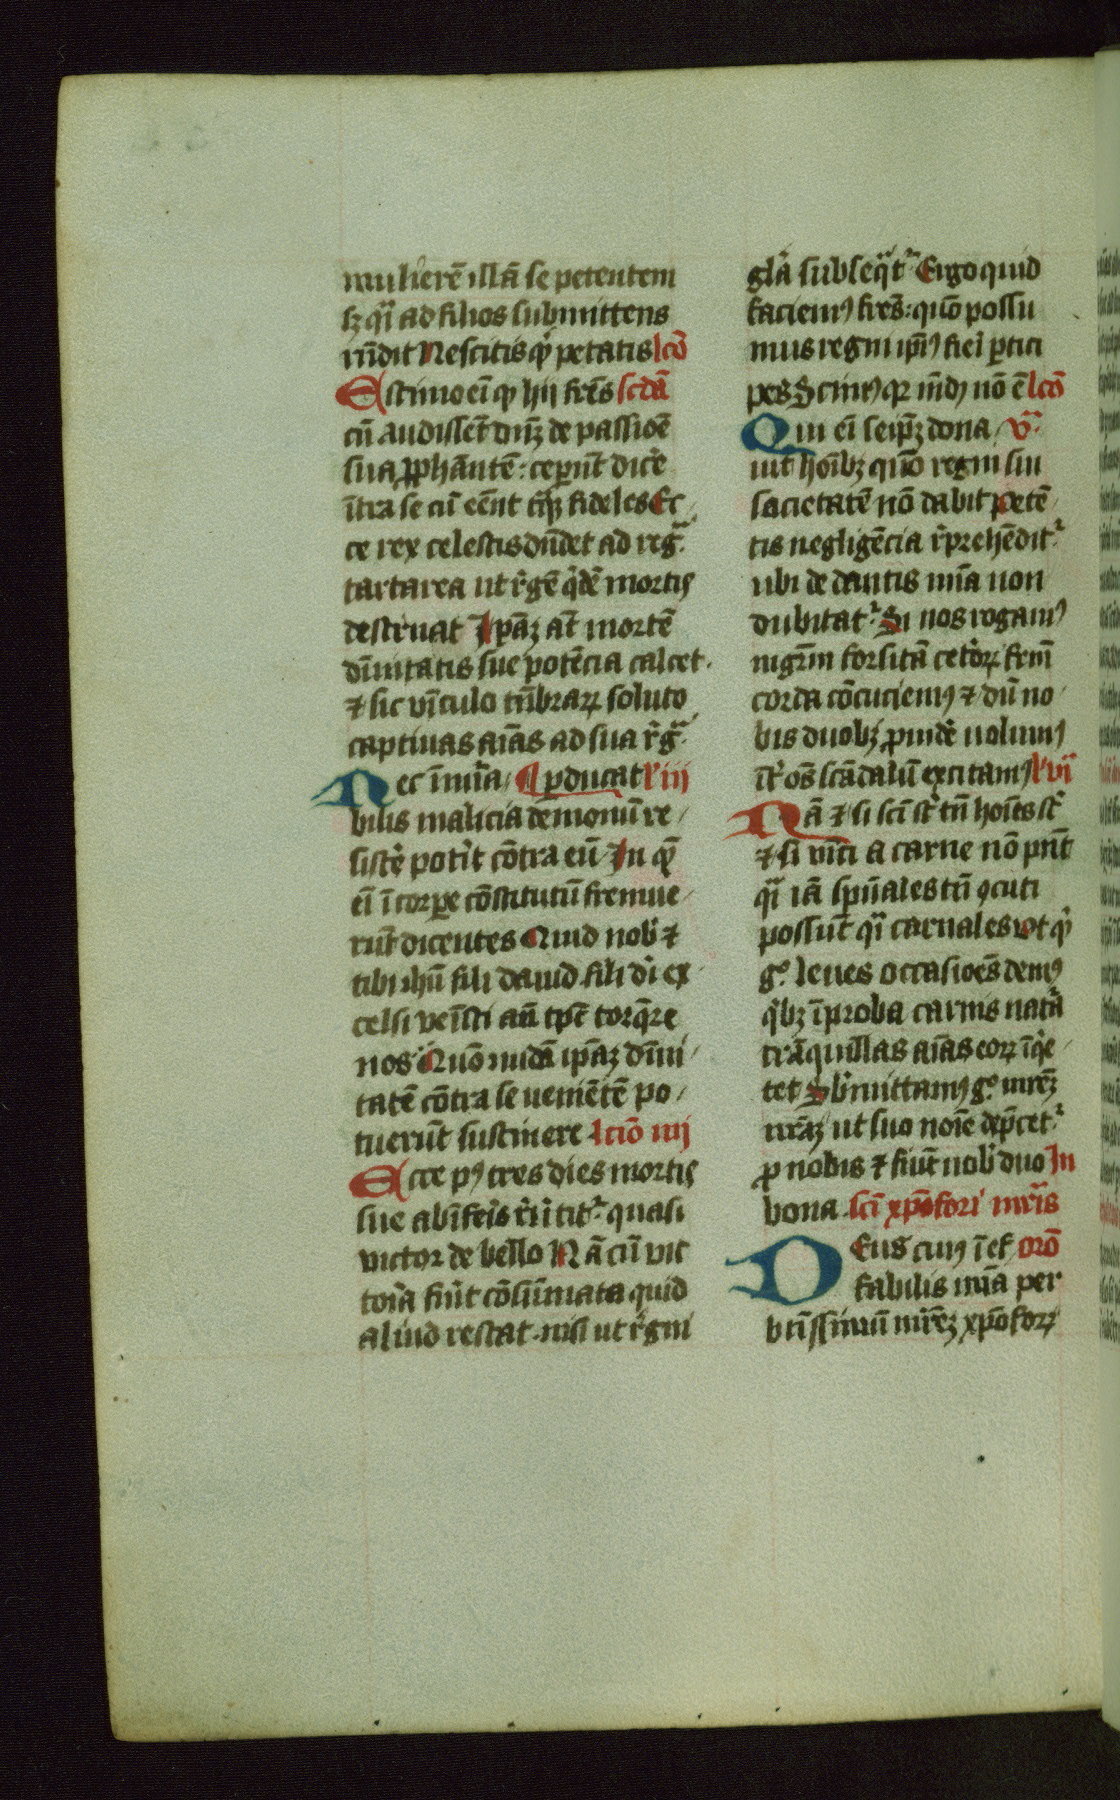 mulierē illā se petentem
sꝫ qͥ ad filios submittens
rn̄dit Nescitis qͥ petatis lcō
Estimo eī qͥ hij frēs scdā
cū audissēt dn̄ꝫ de passiōe
sua ꝓphātē: ceperūt dic̄e
ītra se cū eēnt tq̄ꝫ fideles Ec
ce rex celestis dn̄det ad regᷓ
tartarea ut r̄gē q̄dē mortis
destruat Ipāꝫ aūt mortē
dīuitatis sue potēcia calcet.
⁊ sic vīculo tn̄braꝝ soluto
captiuas aīas ad sua r̄gᷓ
Nec īmīa ꝓducat lͥ iij
bilis malicia demonū re
sistē potit cōtra eū In qͦ
eī ī corpe cōstitutū fremue
rūt dicentes Quid nobͥ ⁊
tibi ihū fili dauid fili dī ex
celsi veīsti an̄ tp̄s torq̄re
nos Quō nudā ipāꝫ dīui
tatē cōtra se uenietē po
tuerūt sustinere lcīo iiij
Ecce pꝰ tres dies mortis
sue ab īferis r̄titͬ quasi
victor de bello Nā cū vic
toria fuīt cōsūmata quid
aliud restat nisi ut r̄gni
glā subseqᷓtͬ Ergo quid
faciemꝰ frēs: quō possu
mus regni ipīꝰ fieī ꝑtici
pes Scimꝰ qꝛ īuidꝰ nō ē lcō
Qui eī seipꝫ dona v̄ᷓ
uit hoībꝫ quō regni sui
societatē nō dabit Petē
tis negligēcia r̄prehēditͬ
ubi de dantis mīa non
dubitatͬ Si nos rogamꝰ
nigrm̄ forsitā cet̄oꝝ frm̄
corda cōcuciemꝰ ⁊ dū no
bis duobꝫ ꝓuidē uolumꝰ
cet̄os scādalū excitamꝰ lͥ vī
Nā ⁊ si scī st̄ tn̄ hoīes st̄
⁊ si vīci a carne nō pn̄t
qͥ iā spūales tn̄ ꝯcuti
possūt qͥ carnales Ut qͥ
gͦ leues occasiōes demꝰ
qͥbꝫ īproba carnis natā
trāquillas aīas eoꝝ īqͥe
tet Sb̄mittamꝰ gͦ mr̄eꝫ
nrāꝫ ut suo noīe dep̄cetͬ
ꝓ nobis ⁊ fiūt nobͥ duo In
bona scī xp̄ofori mr̄is
Deus cuiꝰ īef orō
fabilis mīa per
btīssimū mr̄eꝫ xp̄oforꝝ